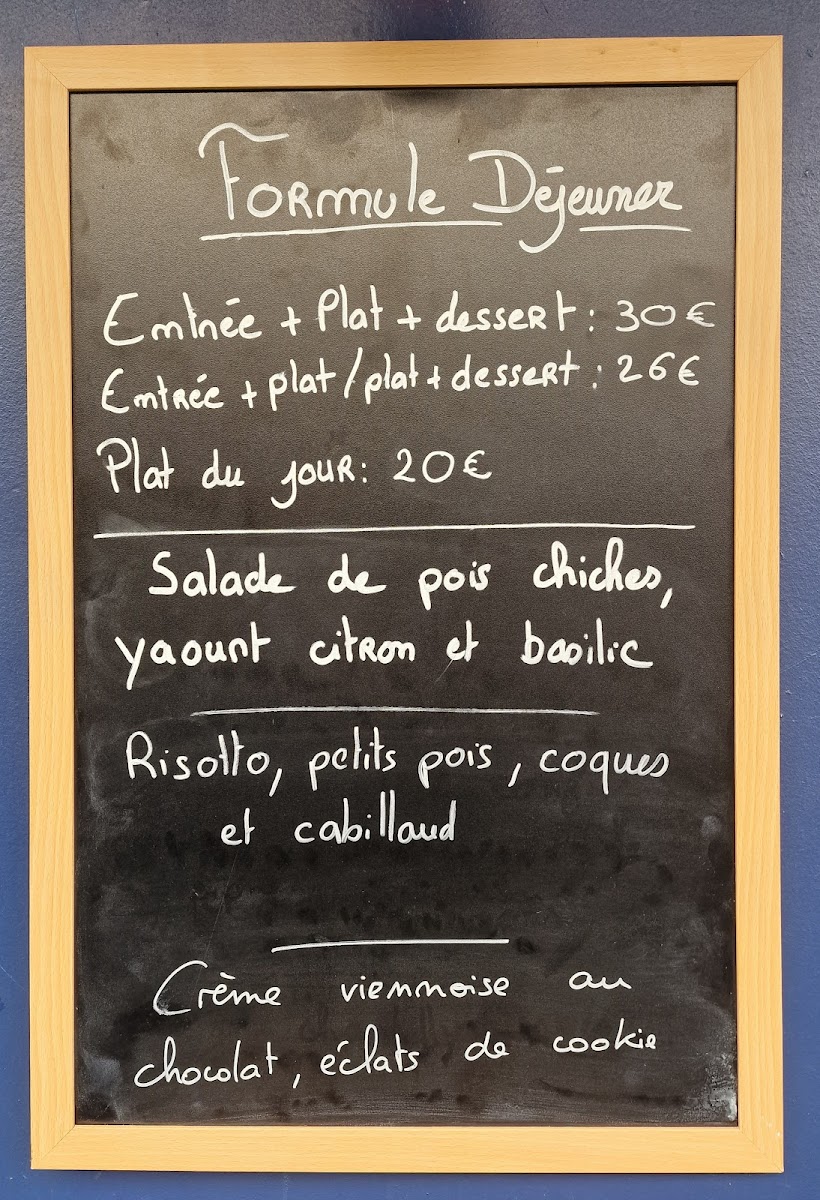 Formule Déjeuner
Entrée + Plat + dessert : 30€
Entrée + plat / plat + dessert : 26€
Plat du jour : 20€
Salade de pois chiches,
yaourt citron et basilic
Risotto, petits pois, coques
et cabillaud
Crème viennoise au
chocolat, éclats de cookie